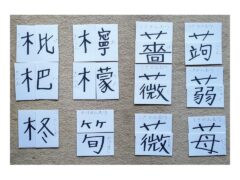 枇 檸 薔 蒟
杷 檬 薇 蒻
柊 筍 薇 苺